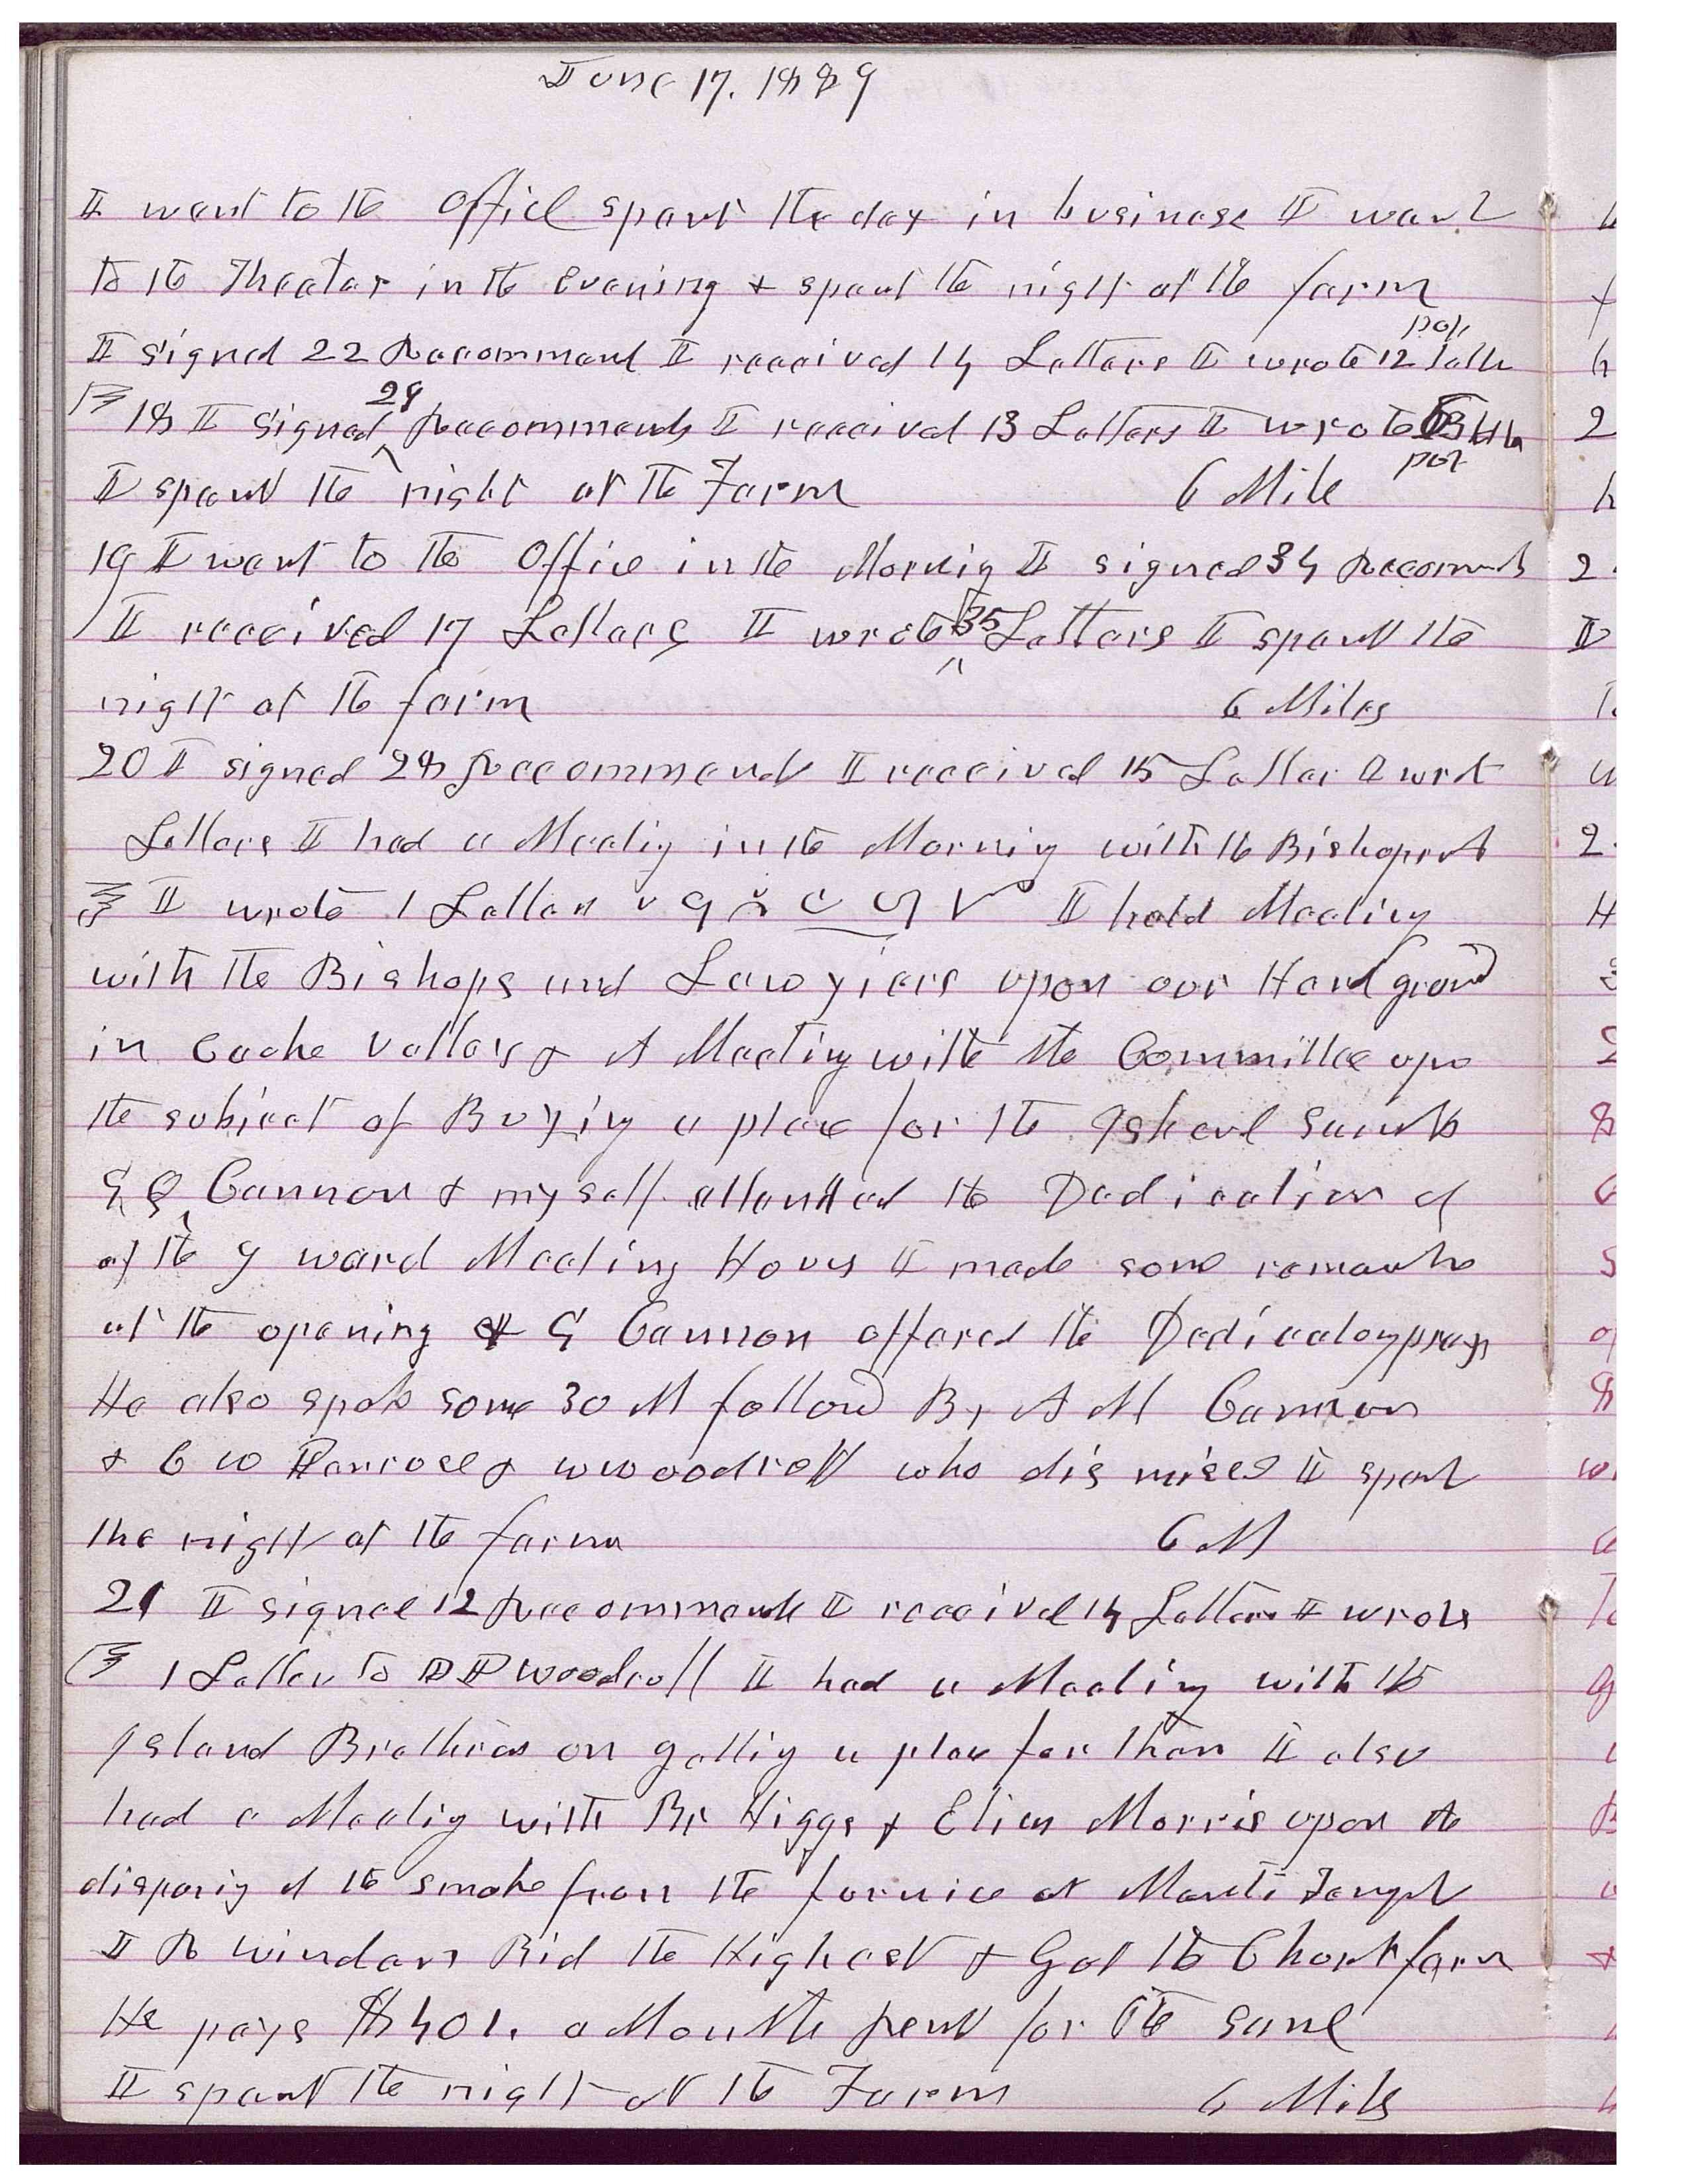 June 17. 1889
I went to the Office spent the day in business I went
to the Theater in the evening & spent the night at the farm
I signed 22 Recommend I received 14 Letters I wrote 12
18 I signed 28 Recommends I received 13 Letters I wrote
I spent the night at the Farm 6 Mile
19 I went to the Office in the Mornig I signed 34 Recomds
I received 17 Letters I wrote 35 Letters I spent the
night at the farm 6 Miles
20 I signed 28 Recommend I received 15 Letter & wrot
Letters I had a Meetig in the Morning with the Bishoprs
I wrote 1 Letter I held Meeting
with the Bishops and Lawyiers upon our Herd ground
in Cache valley & A Meeting with the Committee upo
the subject of Buying a place for the Iland Saints
G Q Cannon & myself attended the Dedication of
of the 9 ward Meeting House I made some remarks
at the opening & G Cannon offered the Dedicatory prayr
He also spok some 30 M followd By A M Cannon
& C W Penrose & W Woodruff who dismised I spent
the night at the farm 6 M
21 I signed 12 Recommends I received 14 Letters I wrote
1 Letter to Woodruff I had a Meeting with the
Island Brethren on gettig a place for them I also
had a Meetig with Br Higgs & Elias Morris upon the
disposig of the smoke from the furnice at Manti Templ
I R Winder Bid the Highest & Got the Church farm
He pays $401. a Month rent for the same
I spent the night at the Farm 6 Mils